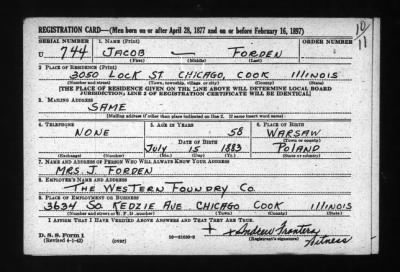 REGISTRATION CARD—(Men born on or after April 28, 1877 and on or before February 16, 1897)
10/11
SERIAL NUMBER 1. NAME (Print) ORDER NUMBER
U 744 JACOB — FORDEN
(First) (Middle) (Last)
2. PLACE OF RESIDENCE (Print)
3050 LOCK ST. CHICAGO, COOK ILLINOIS
(Number and street) (Town, township, village, or city) (County) (State)
[THE PLACE OF RESIDENCE GIVEN ON THE LINE ABOVE WILL DETERMINE LOCAL BOARD
JURISDICTION; LINE 2 OF REGISTRATION CERTIFICATE WILL BE IDENTICAL]
3. MAILING ADDRESS
SAME
[Mailing address if other than place indicated on line 2. If same insert word same]
4. TELEPHONE 5. AGE IN YEARS 6. PLACE OF BIRTH
NONE 58 WARSAW
DATE OF BIRTH (Town or county)
July 15 1883 POLAND
(Exchange) (Number) (Mo.) (Day) (Yr.) (State or country)
7. NAME AND ADDRESS OF PERSON WHO WILL ALWAYS KNOW YOUR ADDRESS
MRS. J. FORDEN
8. EMPLOYER'S NAME AND ADDRESS
THE WESTERN FOUNDRY CO.
9. PLACE OF EMPLOYMENT OR BUSINESS
3634 SO. KEDZIE AVE CHICAGO COOK ILLINOIS
(Number and street or R. F. D. number) (Town) (County) (State)
I AFFIRM THAT I HAVE VERIFIED ABOVE ANSWERS AND THAT THEY ARE TRUE.
+ x Andrew
D. S. S. Form 1 (Registrant's signature)
(Revised 4-1-42) (over) Witness